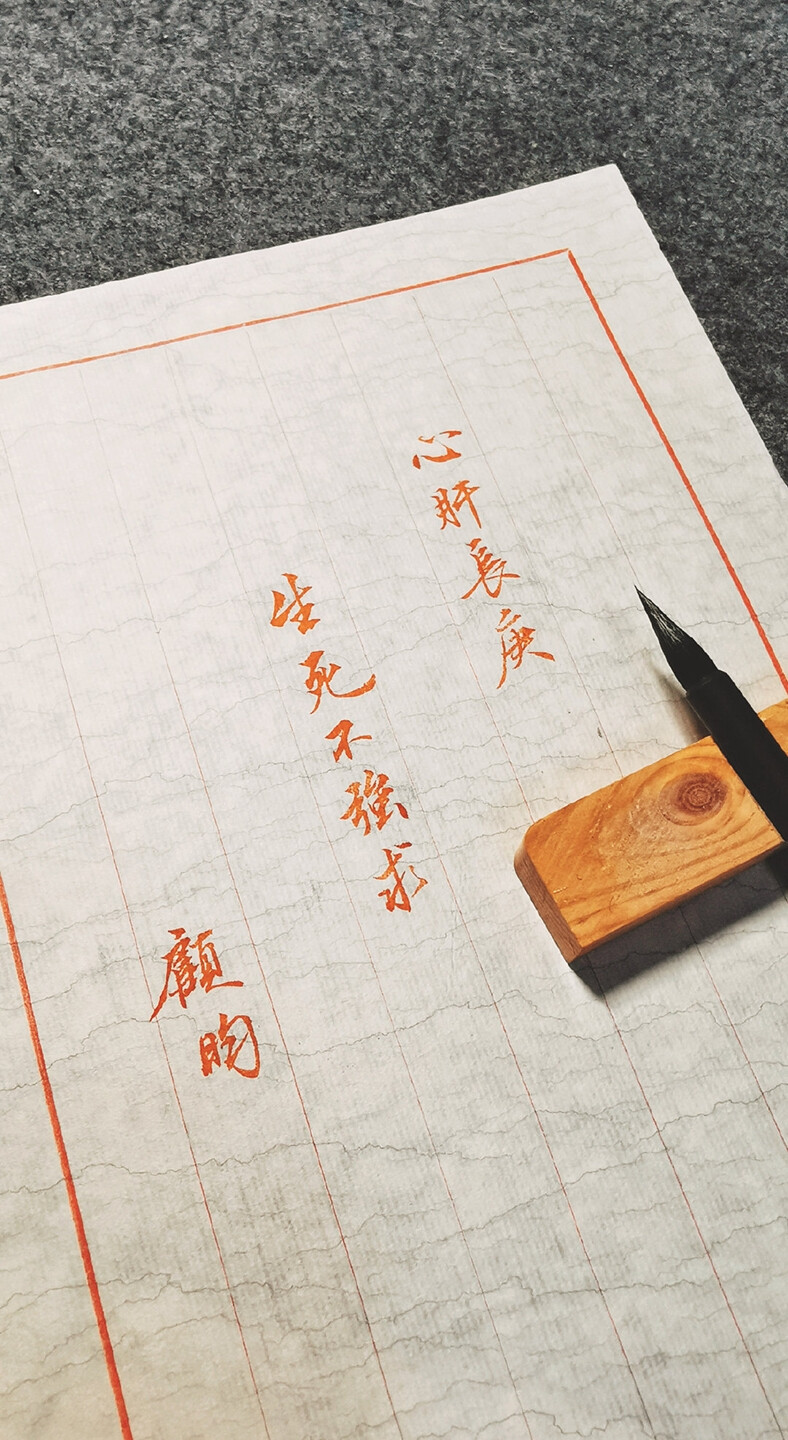 心肝長庚
生死不强求
顧昀